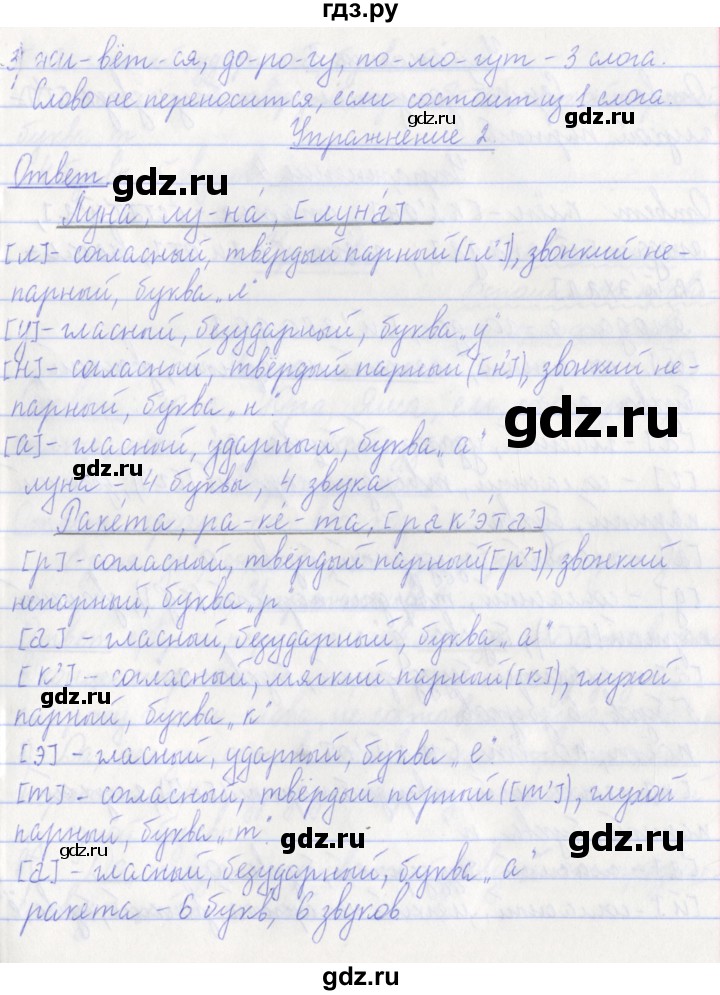 гдз.ру
3) жи-вёт-ся, до-ро-гу, по-мо-гут - 3 слога.
Слово не переносится, если состоит из 1 слога.
gdz.ru
Упражнение 2.
Ответ.
gdz.ru
Луна, лу-на́, [луна́]
[л] - согласный, твёрдый парный ([л']), звонкий не-
парный, буква „л"
[у] - гласный, безударный, буква „у"
[н] - согласный, твёрдый парный ([н']), звонкий не-
парный, буква „н"
gdz.ru
[а] - гласный, ударный, буква „а"
gdz.ru
луна - 4 буквы, 4 звука
Раке́та, ра-ке́-та, [рак'э́та]
[р] - согласный, твёрдый парный ([р']), звонкий
непарный, буква „р"
gdz.ru
[а] - гласный, безударный, буква „а"
[к'] - согласный, мягкий парный ([к]), глухой
gdz.ru
парный, буква „к"
[э] - гласный, ударный, буква „е"
[т] - согласный, твёрдый парный ([т']), глухой
парный, буква „т".
gdz.ru
gdz.ru
[а] - гласный, безударный, буква „а"
gdz.ru
ракета - 6 букв, 6 звуков
gdz.ru